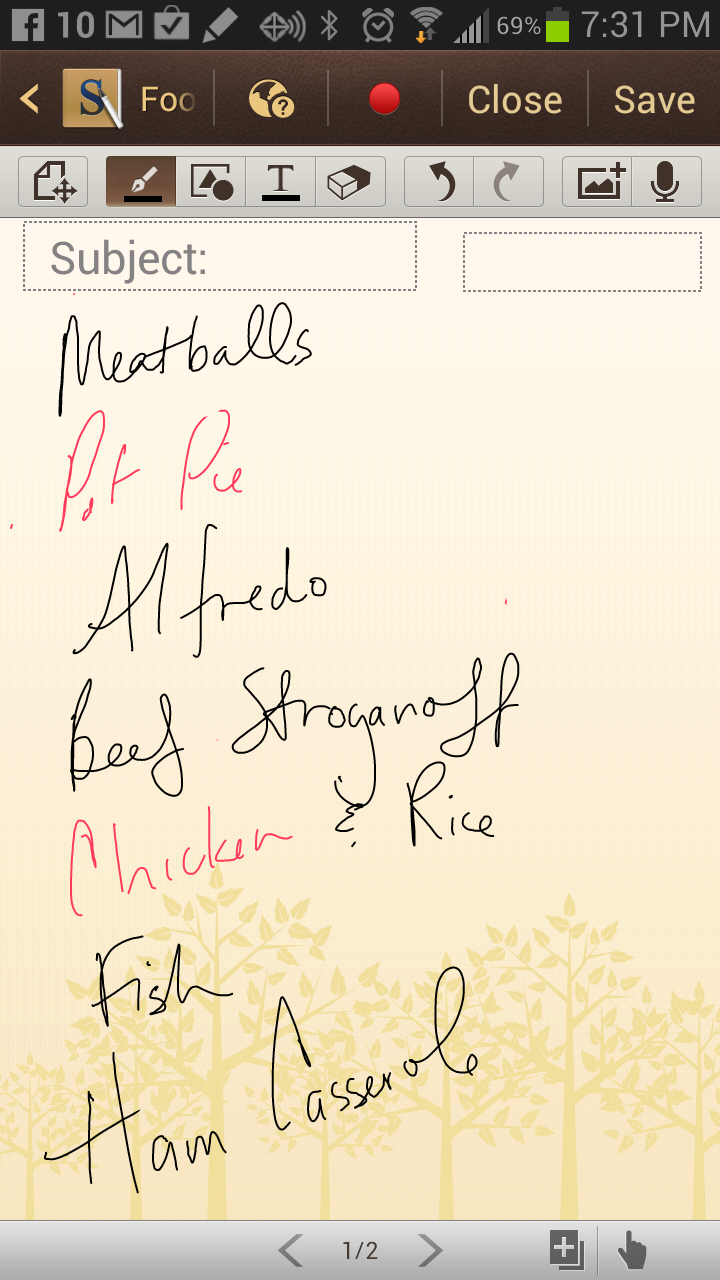 10 69% 7:31 PM
Foo ? Close Save
T
Subject:
Meatballs
Pot Pie
Alfredo
Beef Stroganoff
Chicken & Rice
Fish
Ham Casserole
1/2